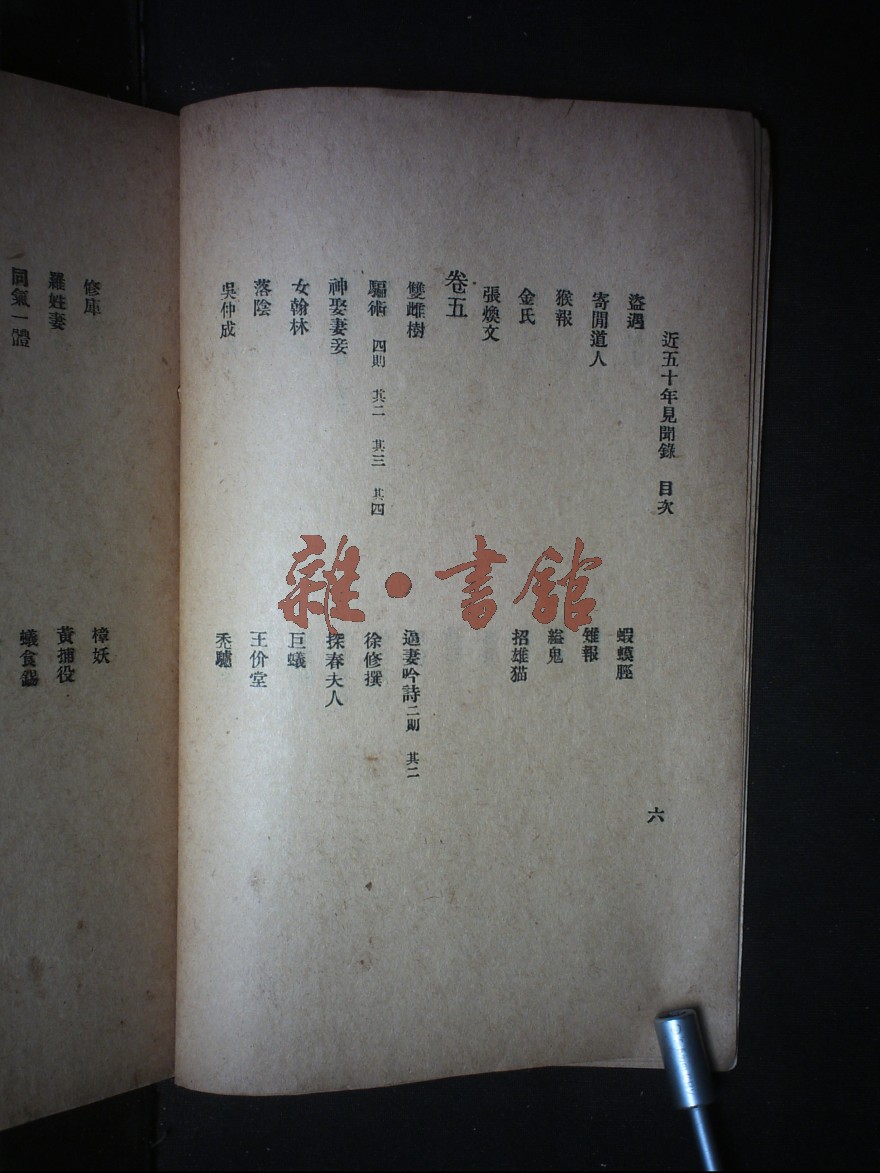 近五十年見聞錄 目次 六
盜遇 蝦蟆脛
寄閒道人 雉報
猴報 縊鬼
金氏 招雄猫
張煥文
卷五
雙雌樹 過妻吟詩 二則 其二
騙術 四則 其二 其三 其四 徐修撰
神娶妻妾 探春夫人
女翰林 巨蟻
落陰 王价堂
吳仲成 禿驢
修庫 樟妖
羅姓妻 黃捕役
同氣一體 蟻食
雜·書館